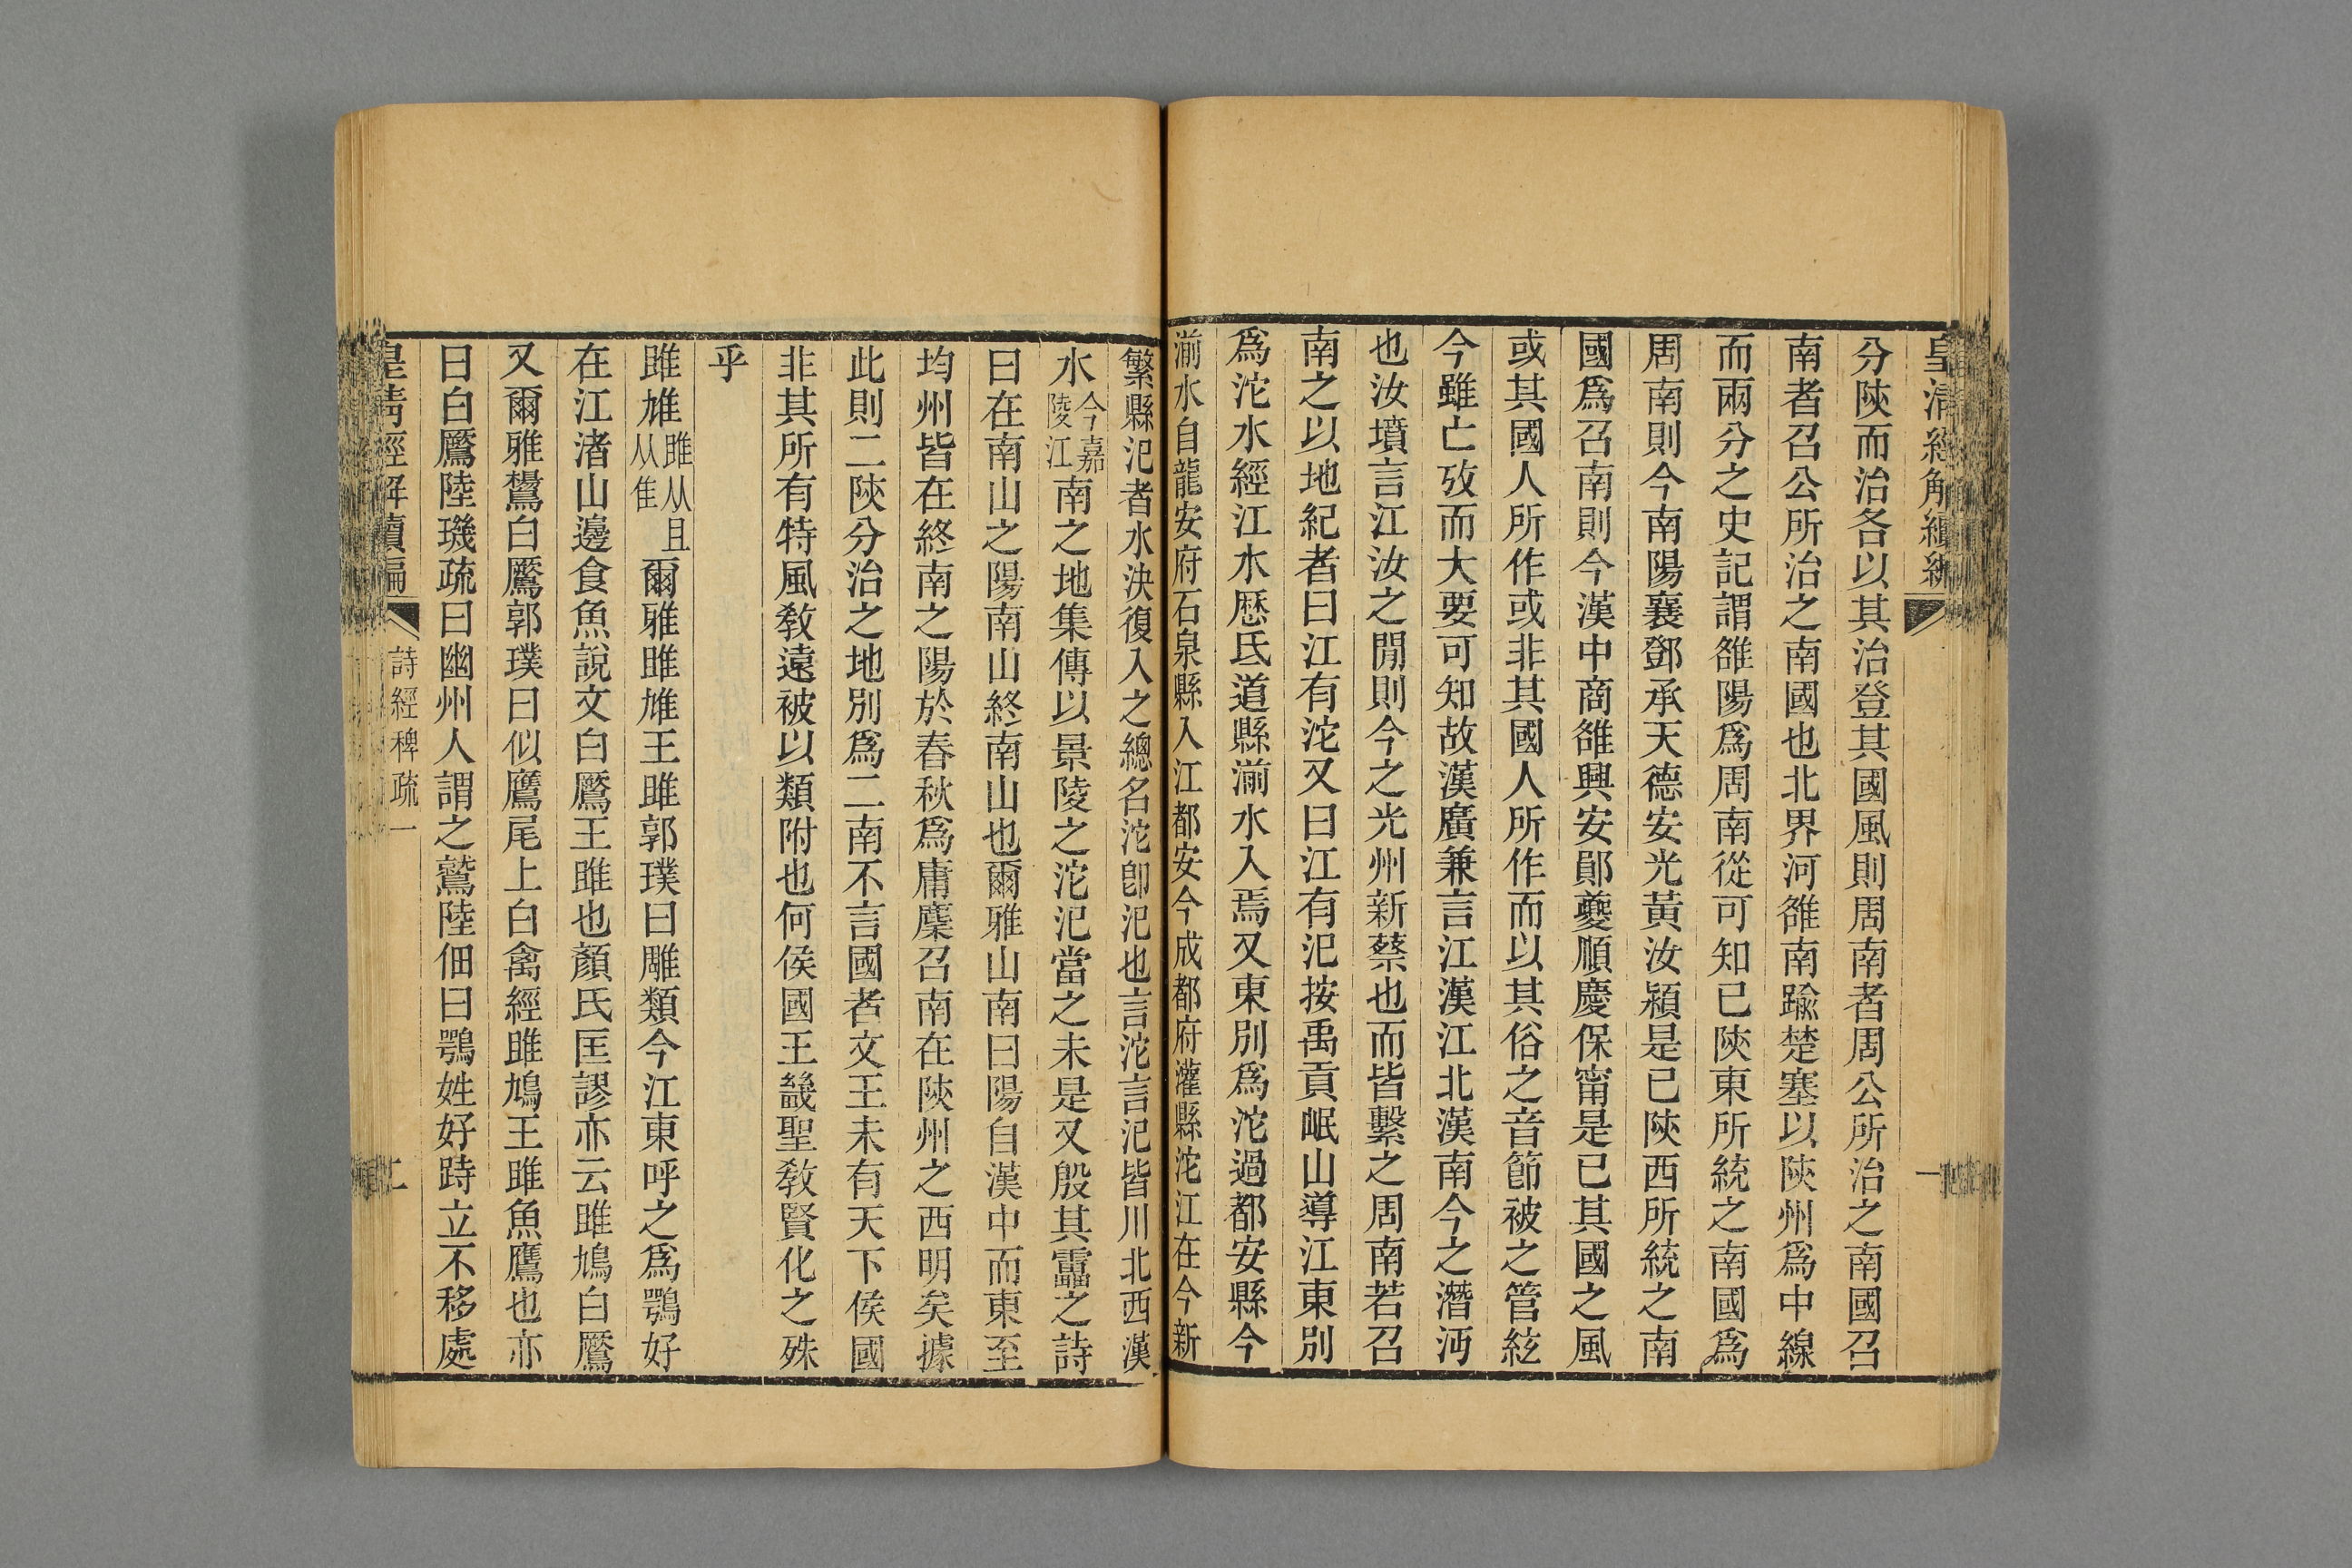 皇清經解續編
一
分陝而治各以其治登其國風則周南者周公所治之南國召
南者召公所治之南國也北界河雒南踰楚塞以陝州爲中線
而兩分之史記謂雒陽爲周南從可知已陝東所統之南國爲
周南則今南陽襄鄧承天德安光黃汝潁是已陝西所統之南
國爲召南則今漢中商雒興安鄖夔順慶保甯是已其國之風
或其國人所作或非其國人所作而以其俗之音節被之管絃
今雖亡攷而大要可知故漢廣兼言江漢江北漢南今之潛沔
也汝墳言江汝之閒則今之光州新蔡也而皆繫之周南若召
南之以地紀者曰江有沱又曰江有汜按禹貢岷山導江東別
爲沱水經江水歷氐道縣湔水入焉又東別爲沱過都安縣今
湔水自龍安府石泉縣入江都安今成都府灌縣沱江在今新
繁縣汜者水決復入之總名沱卽汜也言沱言汜皆川北西漢
水今嘉陵江南之地集傳以景陵之沱汜當之未是又殷其靁之詩
曰在南山之陽南山終南山也爾雅山南曰陽自漢中而東至
均州皆在終南之陽於春秋爲庸麇召南在陝州之西明矣據
此則二陝分治之地別爲二南不言國者文王未有天下侯國
非其所有特風敎遠被以類附也何侯國王畿聖敎賢化之殊
乎
雎雄雎从且从隹爾雅雎雄王雎郭璞曰雕類今江東呼之爲鶚好
在江渚山邊食魚說文白鷢王雎也顏氏匡謬亦云雎鳩白鷢
又爾雅鸉白鷢郭璞曰似鷹尾上白禽經雎鳩王雎魚鷹也亦
曰白鷢陸璣疏曰幽州人謂之鷲陸佃曰鶚姓好跱立不移處
皇清經解續編
詩經稗疏一
二